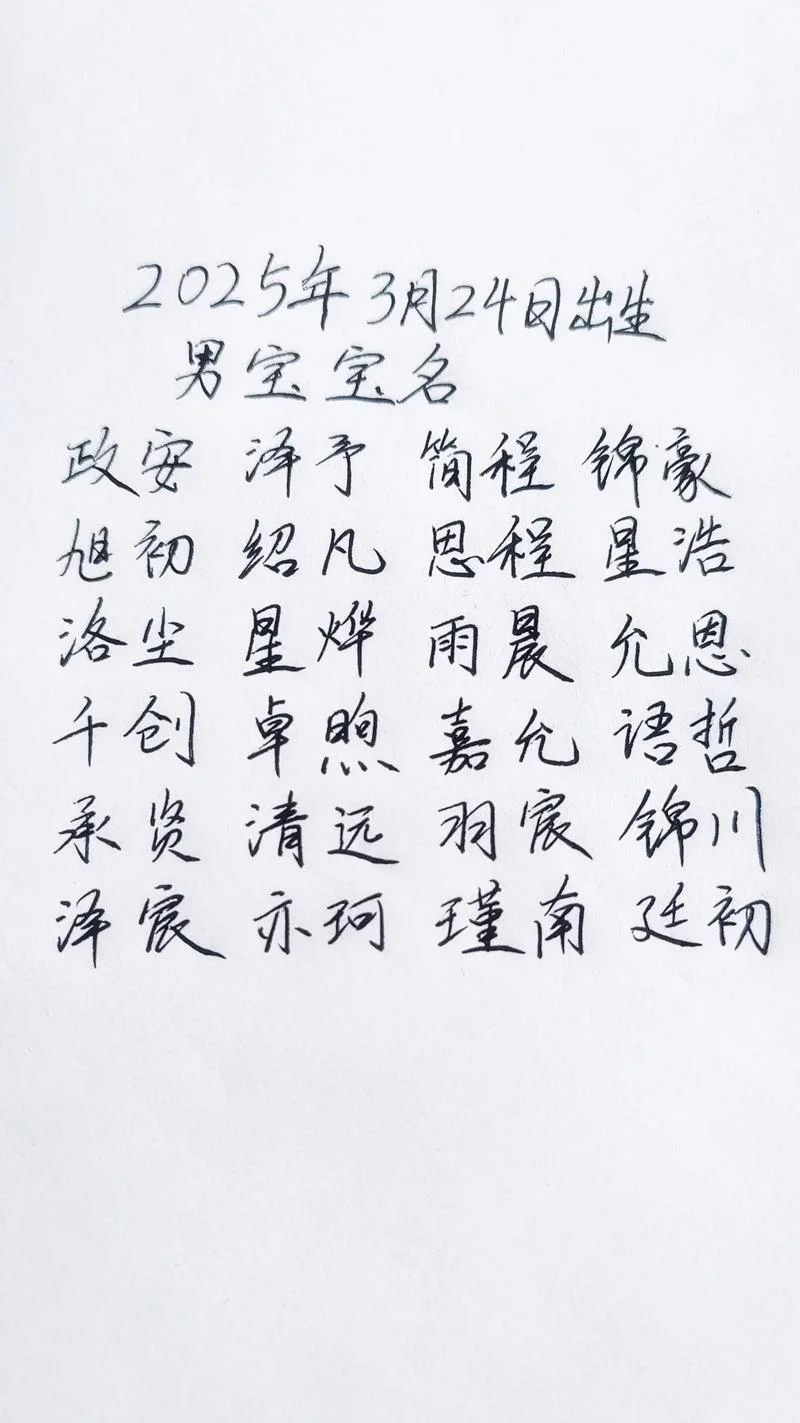 2025年3月24日出生
男宝宝名
政安 泽予 简程 锦豪
旭初 绍凡 恩程 星浩
洛尘 星烨 雨晨 允恩
千创 卓煦 嘉允 语哲
承贤 清远 羽宸 锦川
泽宸 亦珂 瑾南 廷初